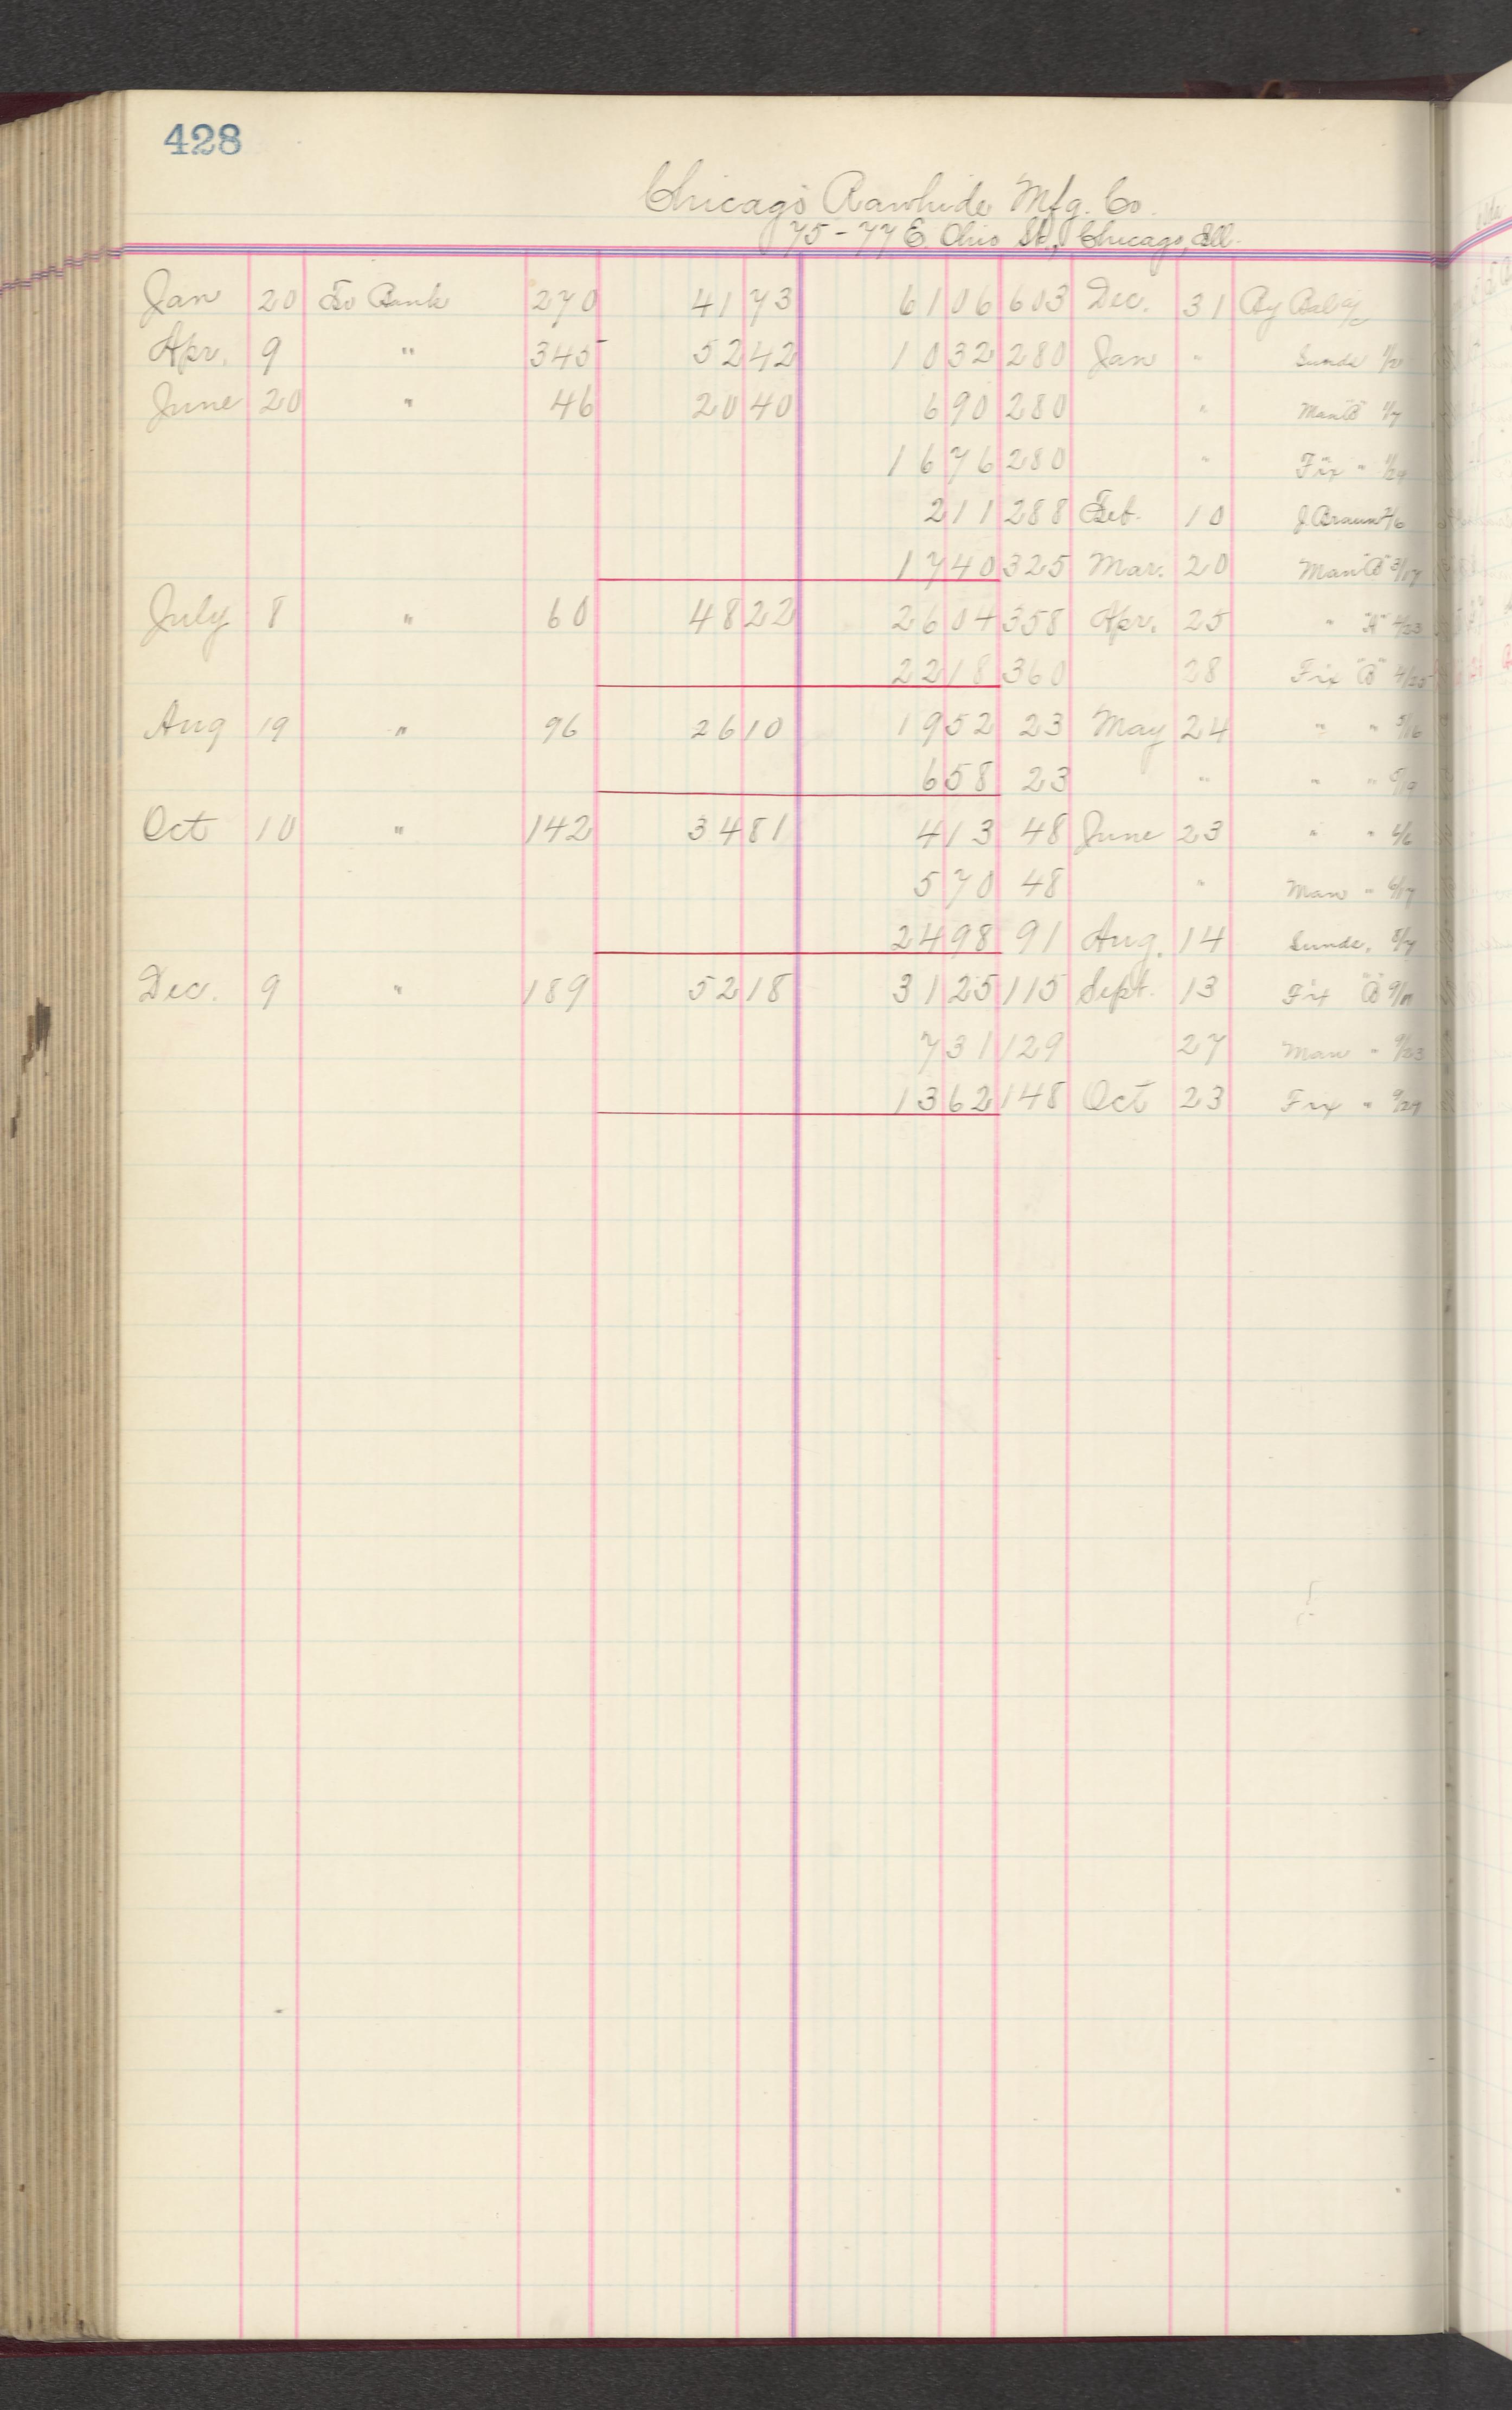 428
Chicago Rawhide Mfg. Co.
75-77 E. Ohio St., Chicago, Ill.
Jan 20 To Bank 270 41 73 61 06 603 Dec. 31 By Bal a/c
Apr. 9 " 345 52 42 10 32 280 Jan " Sunds
June 20 " 46 20 40 6 90 280 " Man "B" 1/7
16 76 280 " Fix " 1/29
2 11 288 Feb. 10 J. Braun 2/6
17 40 325 Mar. 20 Man "B" 3/17
July 8 " 60 48 22 26 04 358 Apr. 25 " "A" 4/23
22 18 360 28 Fix "B" 4/25
Aug 19 " 96 26 10 19 52 23 May 24 " " 5/16
6 58 23 " " " 5/19
Oct 10 " 142 34 81 4 13 48 June 23 " " 6/6
5 70 48 " Man " 6/17
24 98 91 Aug. 14 Sunds. 8/7
Dec. 9 " 189 52 18 31 25 115 Sept. 13 Fix "B" 9/11
7 31 129 27 Man " 9/23
13 62 148 Oct 23 Fix " 9/29